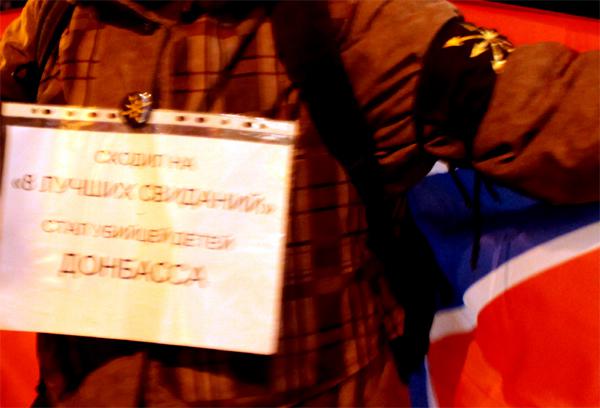 СХОДИЛ НА
«8 ЛУЧШИХ СВИДАНИЙ»
СТАЛ УБИЙЦЕЙ ДЕТЕЙ
ДОНБАССА